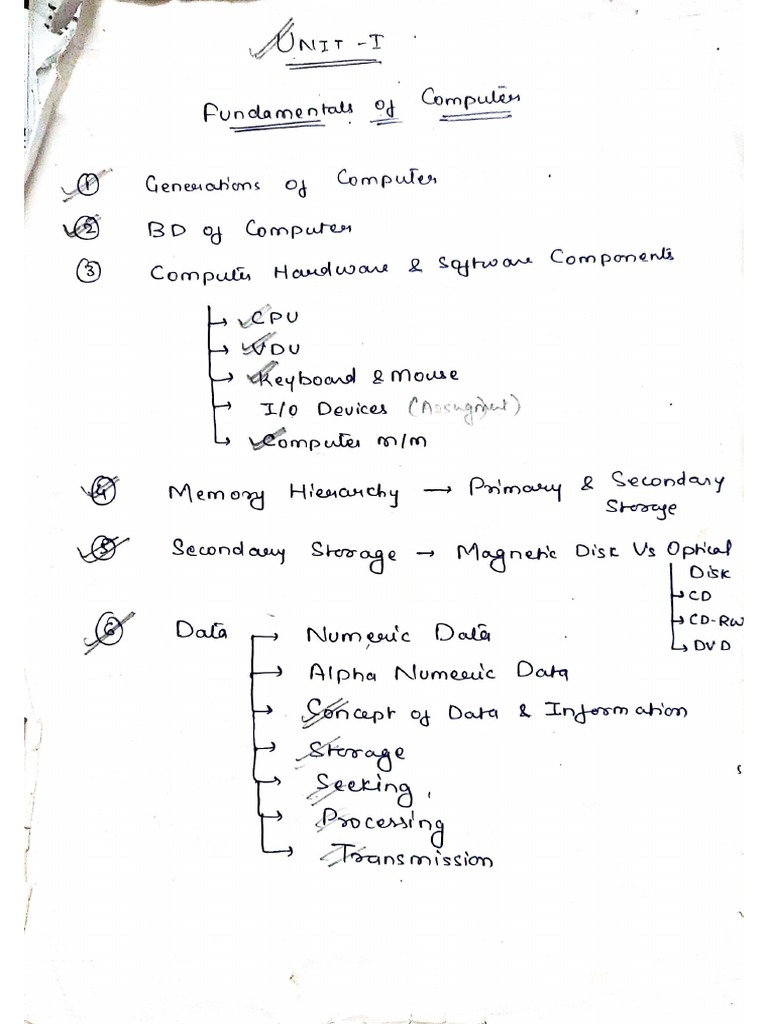 UNIT - I
Fundamentals of Computer
① Generations of Computer
② BD of Computer
③ Computer Hardware & Software Components
CPU
VDU
Keyboard & Mouse
I/O Devices (Assignment)
Computer m/m
④ Memory Hierarchy → Primary & Secondary
Storage
⑤ Secondary Storage → Magnetic Disk Vs Optical
Disk
CD
CD-RW
DVD
⑥ Data → Numeric Data
Alpha Numeric Data
Concept of Data & Information
Storage
Seeking
Processing
Transmission